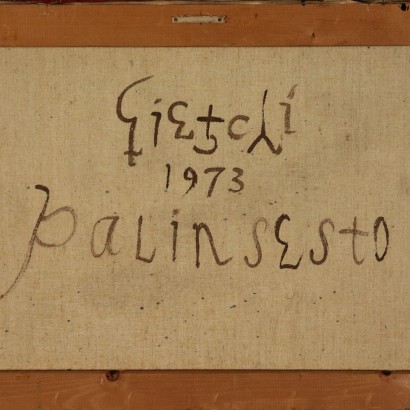 Fieschi
1973
Palinsesto